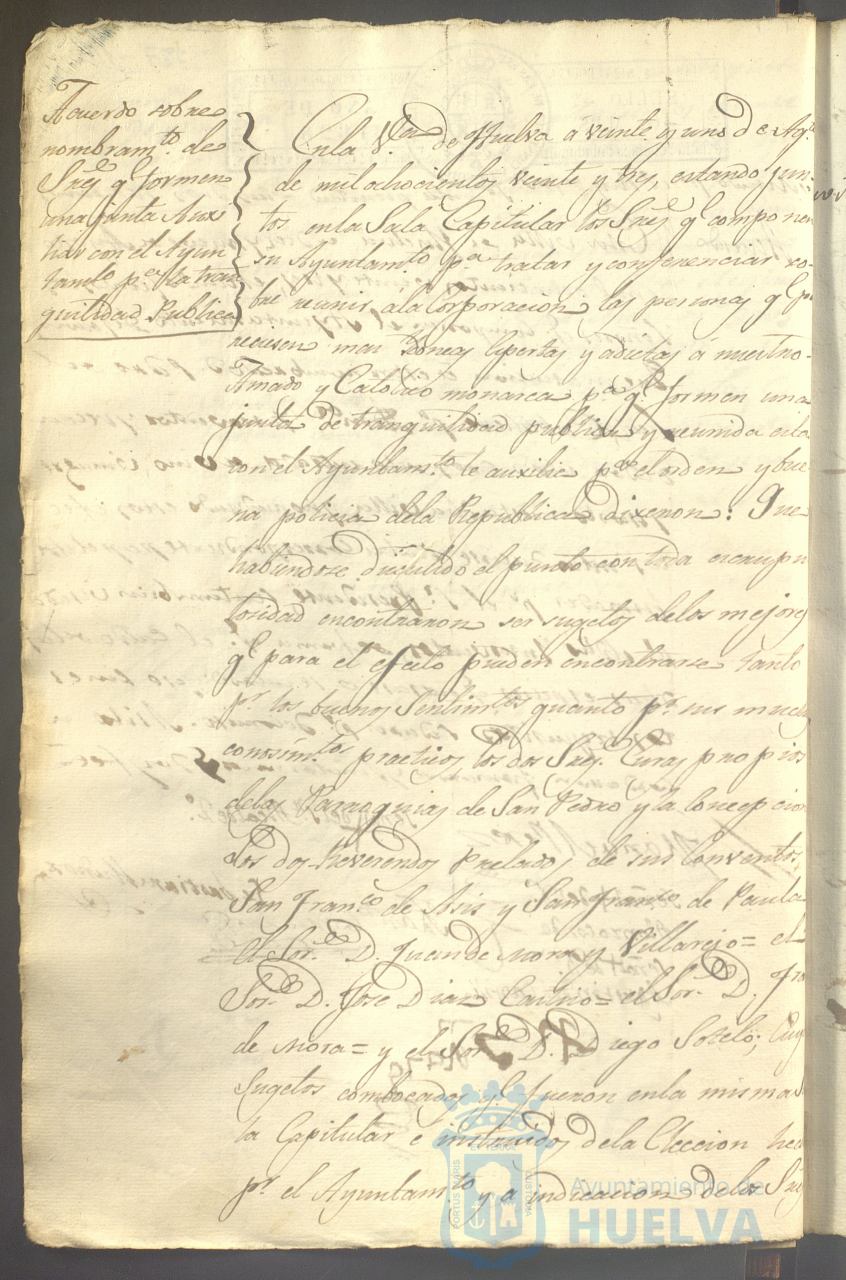 Acuerdo sobre
nombram.to de
S.res q.e formen
una junta Aux
liar con el Ayun
tam.to p.a la tran
quilidad Publica
En la V.a de Huelva á veinte y uno de Ag.to
de mil ochocientos veinte y tres, estando jun-
tos en la Sala Capitular los S.res q.e componen
su Ayuntam.to p.a tratar y conferenciar so-
bre reunir á la Corporacion las personas q.e
mas ydoneas y adictas á nuestro
Amado y Catolico monarca p.a q.e formen una
junta de tranquilidad publica y reunida esta
con el Ayuntam.to le auxilie p.a el orden y bue
na policia dela Republica dixeron: Que
habiendose discutido el punto con toda escrupu
losidad encontraron ser sugetos delos mejores
q.e para el efecto pueden encontrarse tanto
p.r los buenos sentim.tos quanto p.r sus muchos
conosim.tos practicos los dos S.res Curas propios
delas Parroquias de San Pedro y la Concepcion
los dos Reverendos Prelados de sus Conventos,
San Fran.co de Asis y San Fran.co de Paula
el Sor. D. Juan de Mora y Villarejo = el
Sor. D. Jose Diaz = el Sor. D. Fra
de Mora = y el Sor. D. Diego Sotelo; Cuyos
sugetos combocados q.e fueron en la misma
la Capitular e instruidos dela Eleccion hec
p.r el Ayuntam.to y á indicacion delos S.res
PORTUS MARIS
ET TERRAE
CUSTODIA
Ayuntamiento de
HUELVA